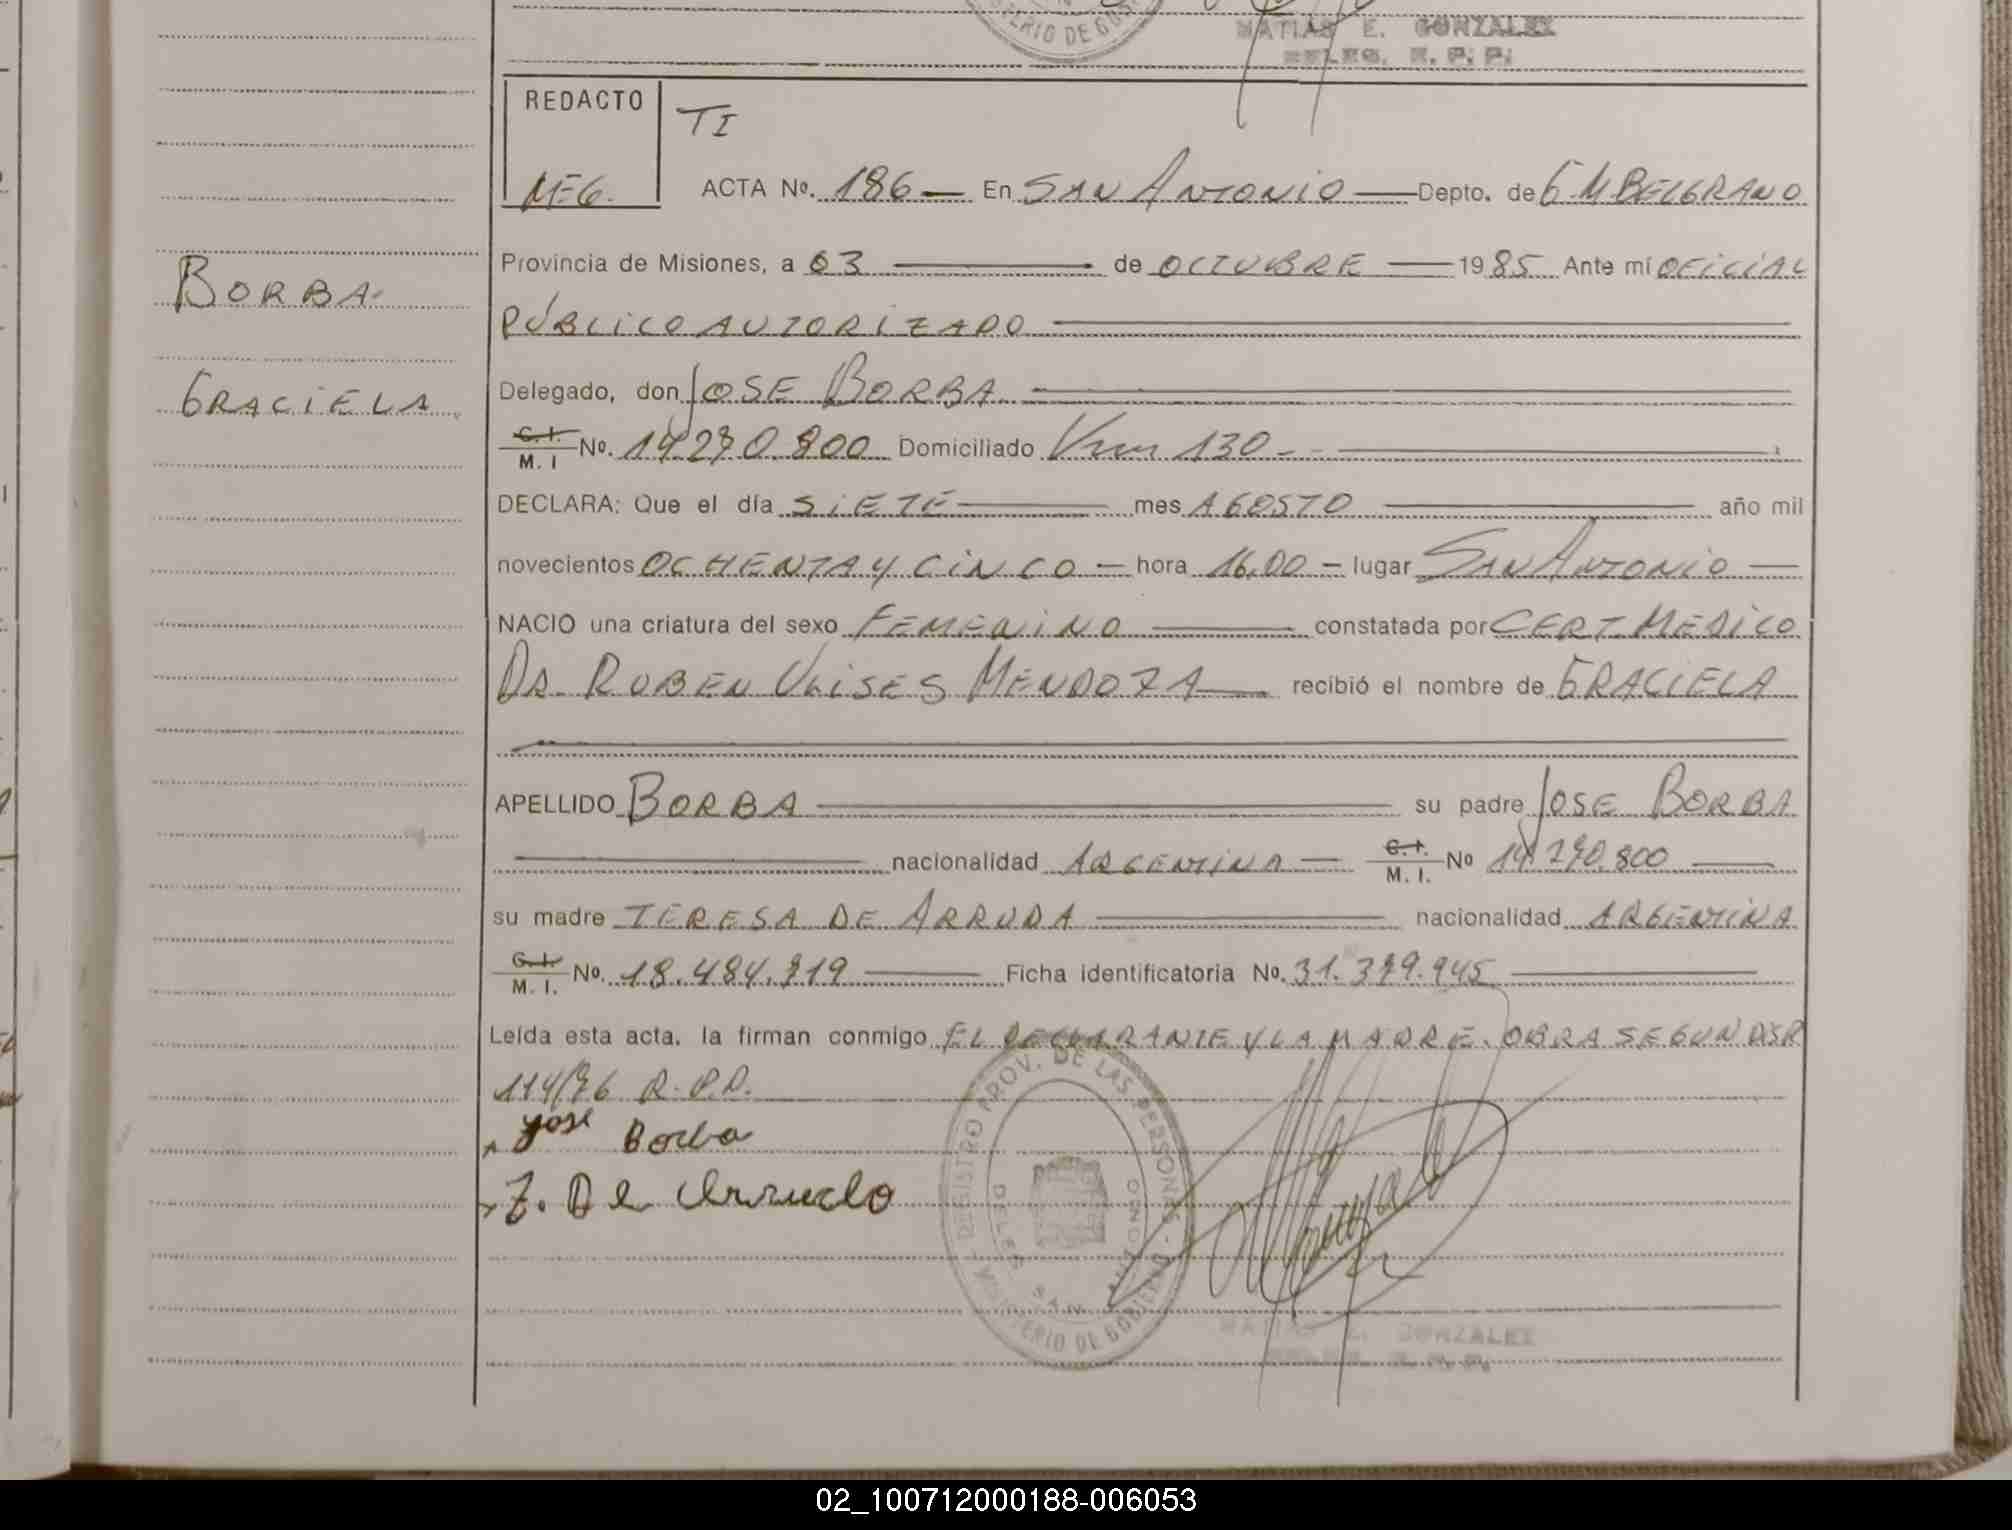 MINISTERIO DE GOB
MATIAS E. GONZALEZ
DELEG. R. P. P.
REDACTO
MEG.
TI
ACTA Nº. 186 — En SAN ANTONIO — Depto. de G. M BELGRANO
Provincia de Misiones, a 03 — de OCTUBRE — 1985 Ante mí OFICIAL
PÚBLICO AUTORIZADO —
BORBA
GRACIELA
Delegado, don JOSE BORBA —
C. I.
M. I Nº. 14.270.800 Domiciliado Km 130 —
DECLARA: Que el día SIETE — mes AGOSTO — año mil
novecientos OCHENTA Y CINCO — hora 16,00 — lugar SAN ANTONIO —
NACIO una criatura del sexo FEMENINO — constatada por CERT. MEDICO
DR. RUBEN ULISES MENDOZA — recibió el nombre de GRACIELA
APELLIDO BORBA — su padre JOSE BORBA
— nacionalidad ARGENTINA — C. I.
M. I. Nº 14.270.800 —
su madre TERESA DE ARRUDA — nacionalidad ARGENTINA
C. I.
M. I. Nº. 18.484.719 — Ficha identificatoria Nº. 31.379.945 —
Leída esta acta, la firman conmigo EL DECLARANTE Y LA MADRE. OBRA SEGUN DSP
114/76 R.P.P.
José Borba
T. De Arruda
REGISTRO PROV. DE LAS PERSONAS - MINISTERIO DE GOBIERNO -
DELEG. SAN ANTONIO
MATIAS E. GONZALEZ
DELEG. R. P. P.
02_100712000188-006053